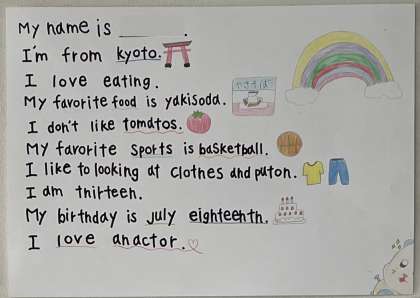 My name is ______.
I'm from kyoto.
I love eating.
My favorite food is yakisoda.
I don't like tomatos.
My favorite sports is basketball.
I like to looking at clothes and puton.
I am thirteen.
My birthday is july eighteenth.
I love anactor.